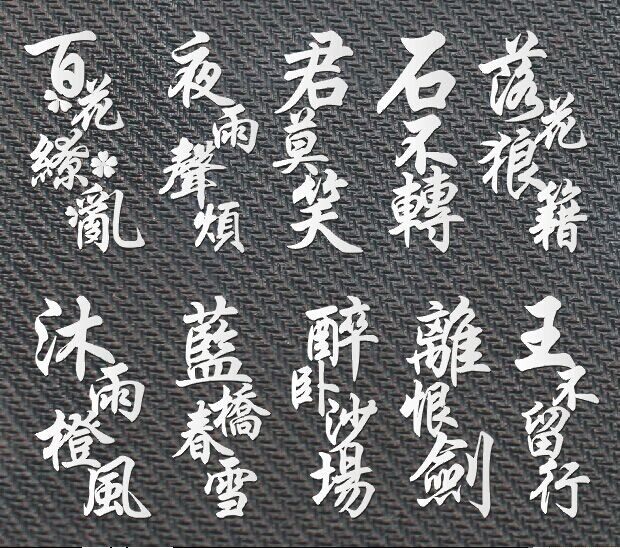 百花繚亂
夜雨聲煩
君莫笑
石不轉
落花狼籍
沐雨橙風
藍橋春雪
醉卧沙場
離恨劍
王不留行